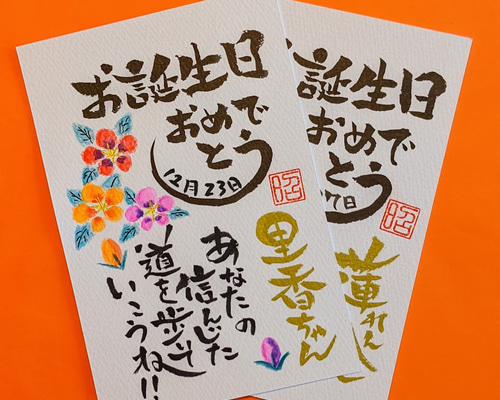 お誕生日
おめで
とう
12月23日
里香ちゃん
あなたの
信んじた
道を歩いて
いこうね!!
誕生日
おめで
とう
7日
蓮れん